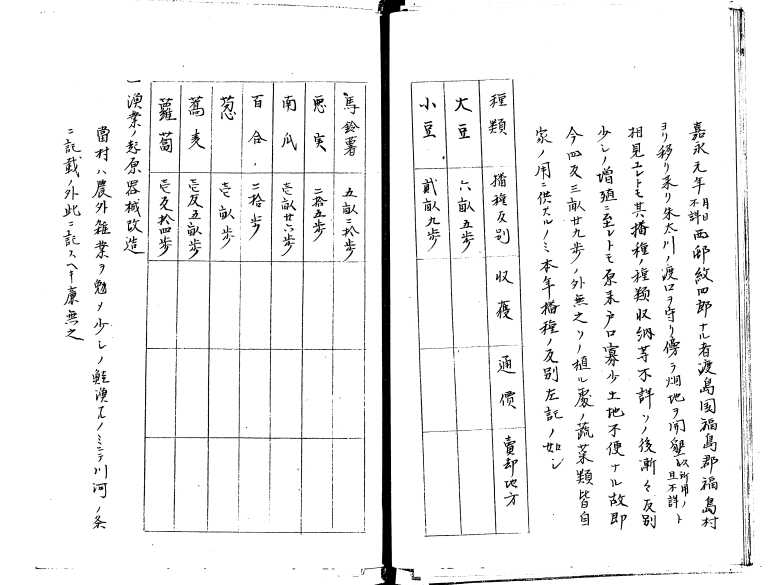 嘉永元年月日不詳西邨紋四郎ナル者渡島国福島郡福島村
ヨリ移リ来リ朱太川ノ渡口ヲ守リ傍ラ畑地ヲ開墾
相見エレトモ其播種ノ種類収納等不詳ソノ後漸々反別
少シノ増殖ニ至レトモ原来戸口寡少土地不便ナル故即
今四反三畝廿九歩ノ外無之ソノ植ル処ノ蔬菜類皆自
家ノ用ニ供スルノミ本年播種ノ反別左記ノ如シ
種類 播種反別 収穫 通價 賣却地方
大豆 六畝五歩
小豆 貳畝九歩
馬鈴薯 五畝二拾歩
二拾五歩
南瓜 壱畝廿六歩
百合 二拾歩
葱 壱畝歩
蕎麦 壱反五畝歩
蘿蔔 壱反拾四歩
一漁業ノ起原器械改造
當村ハ農外雑業ヲ勉メ少シノ鮭漁 ノミニテ川河ノ条
ニ記載ノ外此ニ記スヘキ廉無之